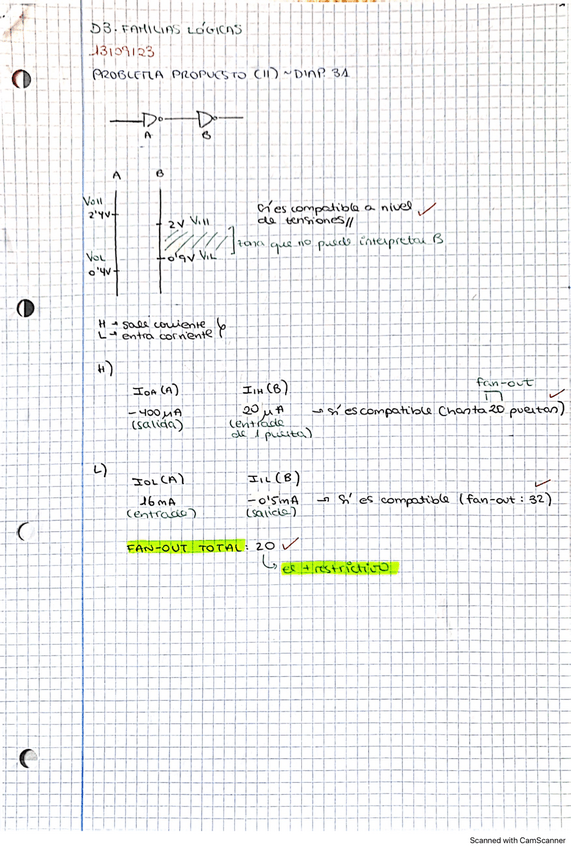 D3. FAMILIAS LÓGICAS
13/09/23
PROBLEMA PROPUESTO (II) ~ DIAP. 31
A B
A B
VOH
2'4V
2V VIH
VOL
0'4V
0'9V VIL
Sí es compatible a nivel
de tensiones//
zona que no puede interpretar B
H → sale corriente
L → entra corriente
H)
fan-out
IOA (A) IIH (B)
-400 μA 20 μA → Sí es compatible (hasta 20 puertas)
(salida) (entrada
de 1 puerta)
L)
IOL (A) IIL (B)
16mA -0'5mA → Sí es compatible (fan-out: 32)
(entrada) (salida)
FAN-OUT TOTAL: 20
el + restrictivo
Scanned with CamScanner